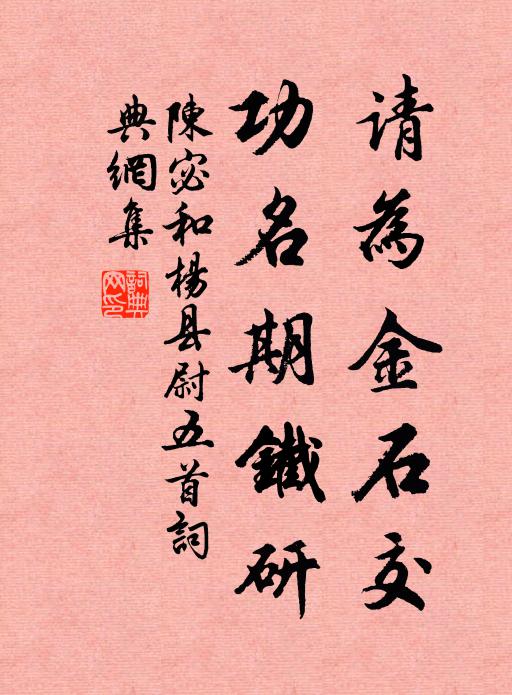 请為金石交
功名期鐵研
陳宓和楊县尉五首詞
典網集
詞典网印